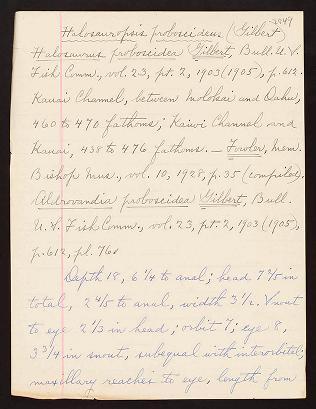 2049
Halosauropsis proboscideus (Gilbert)
Halosaurus proboscidea Gilbert, Bull. U.S.
Fish Comm., vol. 23, pt. 2, 1903 (1905), p. 612.
Kauai Channel, between Molokai and Oahu,
460 to 470 fathoms; Kaiwi Channel and
Kauai, 438 to 476 fathoms. — Fowler, Mem.
Bishop Mus., vol. 10, 1928, p. 35 (compiled).
Aldrovandia proboscidea Gilbert, Bull.
U.S. Fish Comm., vol. 23, pt. 2, 1903 (1905),
p. 612, pl. 76.
Depth 18, 6 1/4 to anal; head 7 2/5 in
total, 2 4/5 to anal, width 3 1/2. Snout
to eye 2 1/3 in head; orbit 7; eye 8,
3 3/4 in snout, subequal with interorbital;
maxillary reaches to eye, length from